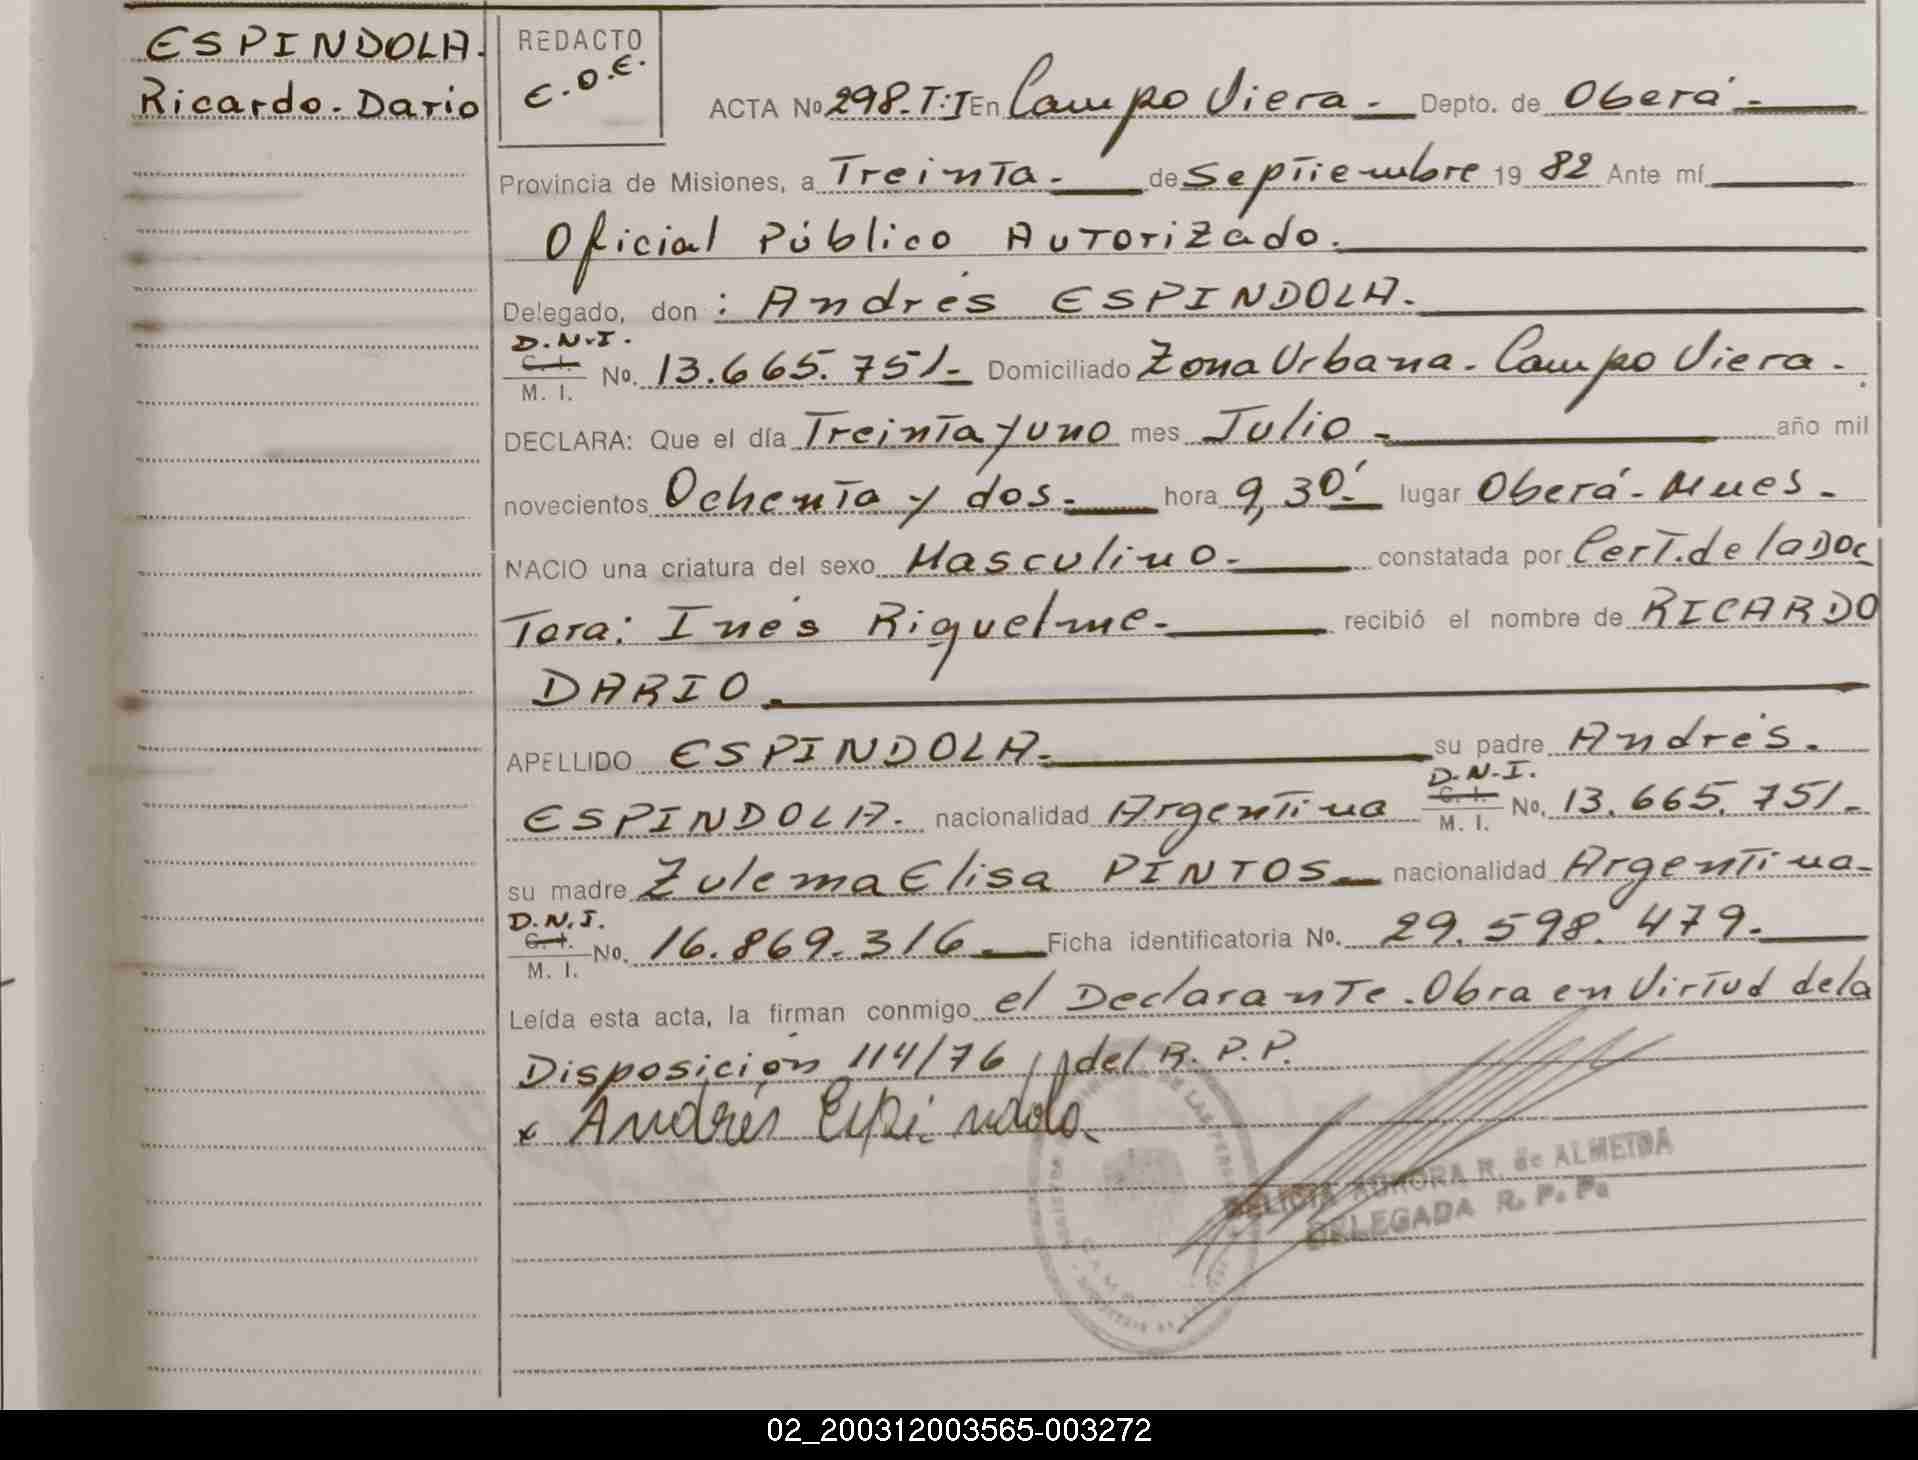 ESPINDOLA.
Ricardo. Dario
REDACTO
E.O.E.
ACTA No 298. T:I En Campo Viera. Depto. de Oberá.
Provincia de Misiones, a Treinta. de Septiiembre 19 82 Ante mí
Oficial Público Autorizado.
Delegado, don : Andrés ESPINDOLA.
D.N.I.
C. I.
M. I. No. 13.665.751. Domiciliado Zona Urbana. Campo Viera.
DECLARA: Que el día Treinta y uno mes Julio año mil
novecientos Ochenta y dos. hora 9,30'. lugar Oberá. Mnes.
NACIO una criatura del sexo Masculino. constatada por Cert. de la Doc
Tora: Inés Riquelme. recibió el nombre de RICARDO
DARIO.
APELLIDO ESPINDOLA. su padre Andrés.
D.N.I.
ESPINDOLA. nacionalidad Argentina C. I. M. I. No. 13.665.751.
su madre Zulema Elisa PINTOS. nacionalidad Argentina.
D.N.I.
C. I.
M. I. No. 16.869.316. Ficha identificatoria No. 29.598.479.
Leída esta acta, la firman conmigo el Declarante. Obra en Virtud de la
Disposición 114/76 del R.P.P.
x Andrés Espindola.
DELICIA AURORA R. de ALMEIDA
DELEGADA R. P. P.
02_200312003565-003272